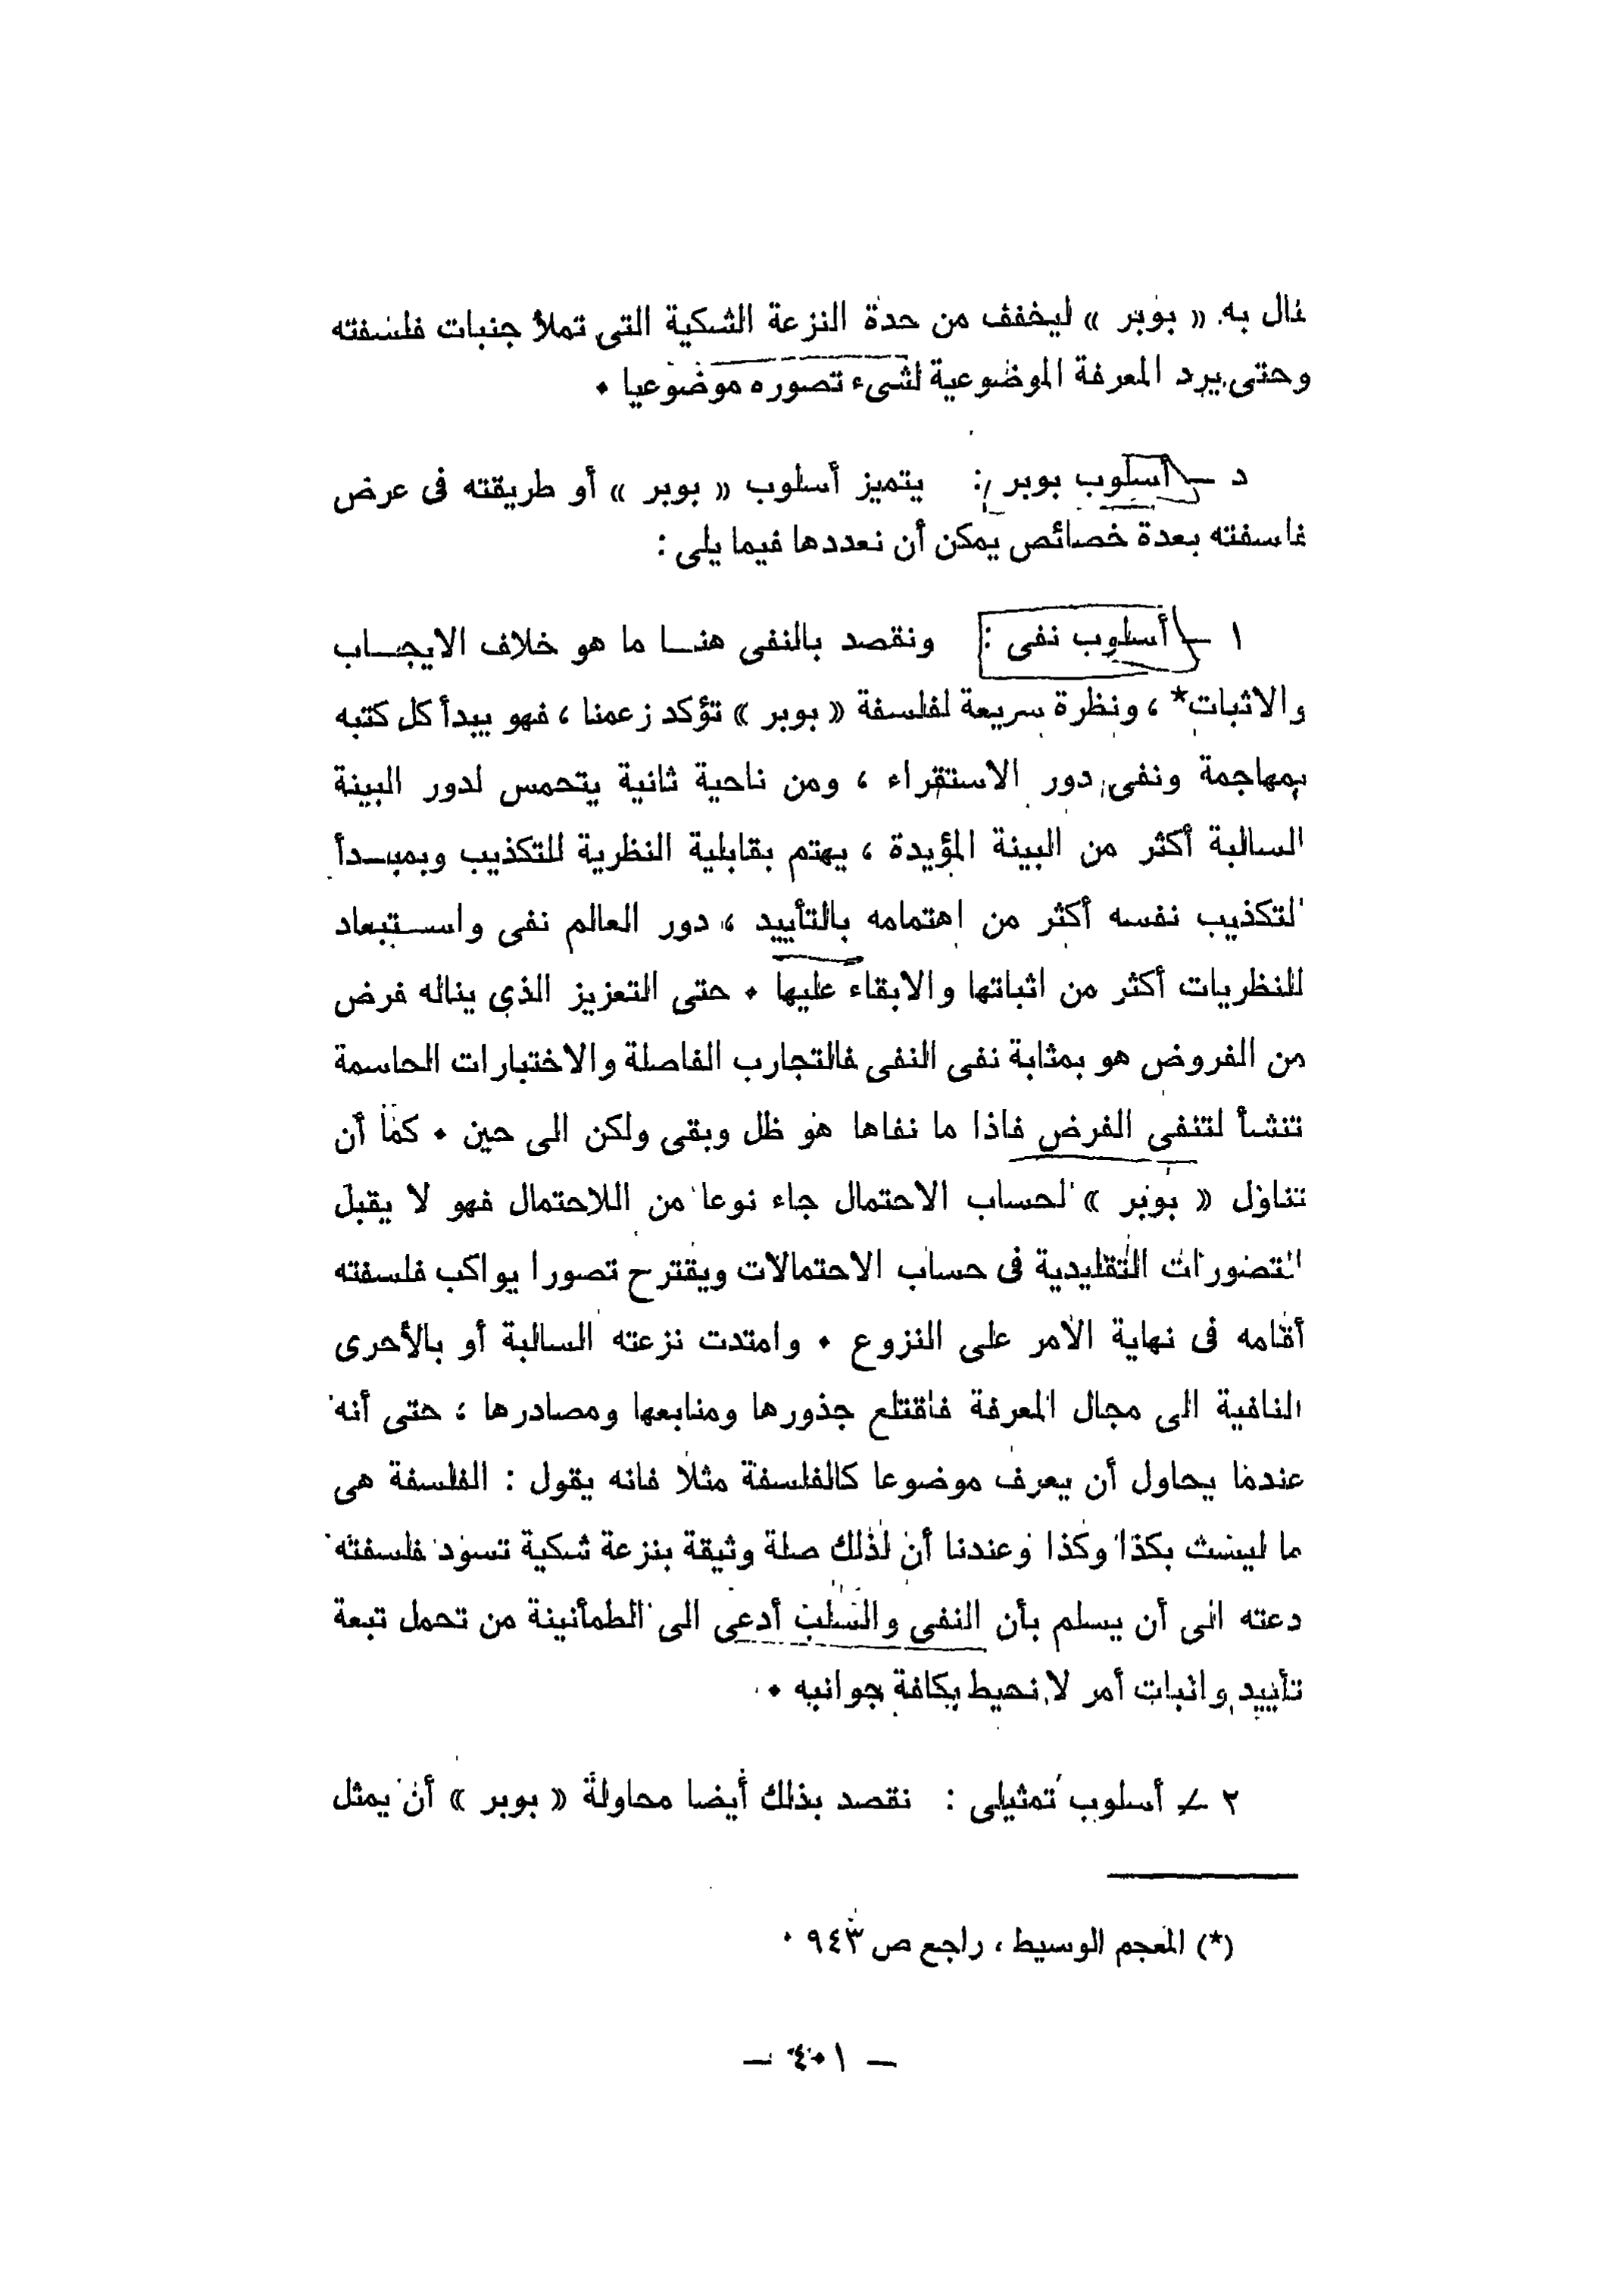 قال به « بوبر » ليخفف من حدة النزعة الشكية التى تملأ جنبات فلسفته
وحتى يرد المعرفة الموضوعية لشىء تصوره موضوعيا ٠
د ـ أسلوب بوبر : يتميز أسلوب « بوبر » أو طريقته فى عرض
فلسفته بعدة خصائص يمكن أن نعددها فيما يلى :
١ ـ أسلوب نفى : ونقصد بالنفى هنا ما هو خلاف الايجاب
والاثبات* ، ونظرة سريعة لفلسفة « بوبر » تؤكد زعمنا ، فهو يبدأ كل كتبه
بمهاجمة ونفى دور الاستقراء ، ومن ناحية ثانية يتحمس لدور البينة
السالبة أكثر من البينة المؤيدة ، يهتم بقابلية النظرية للتكذيب وبمبدأ
التكذيب نفسه أكثر من اهتمامه بالتأييد ، دور العالم نفى واستبعاد
للنظريات أكثر من اثباتها والابقاء عليها ٠ حتى التعزيز الذى يناله فرض
من الفروض هو بمثابة نفى النفى فالتجارب الفاصلة والاختبارات الحاسمة
تنشأ لتنفى الفرض فاذا ما نفاها هو ظل وبقى ولكن الى حين ٠ كما أن
تناول « بوبر » لحساب الاحتمال جاء نوعا من اللاحتمال فهو لا يقبل
التصورات التقليدية فى حساب الاحتمالات ويقترح تصورا يواكب فلسفته
أقامه فى نهاية الأمر على النزوع ٠ وامتدت نزعته السالبة أو بالأحرى
النافية الى مجال المعرفة فاقتلع جذورها ومنابعها ومصادرها ، حتى أنه
عندما يحاول أن يعرف موضوعا كالفلسفة مثلا فانه يقول : الفلسفة هى
ما ليست بكذا وكذا وعندنا أن لذلك صلة وثيقة بنزعة شكية تسود فلسفته
دعته الى أن يسلم بأن النفى والسلب أدعى الى الطمأنينة من تحمل تبعة
تأييد واثبات أمر لا نحيط بكافة جوانبه ٠
٢ ـ أسلوب تمثيلى : نقصد بذلك أيضا محاولة « بوبر » أن يمثل
(*) المعجم الوسيط ، راجع ص ٩٤٣ ٠
ـ ٤٠١ ـ